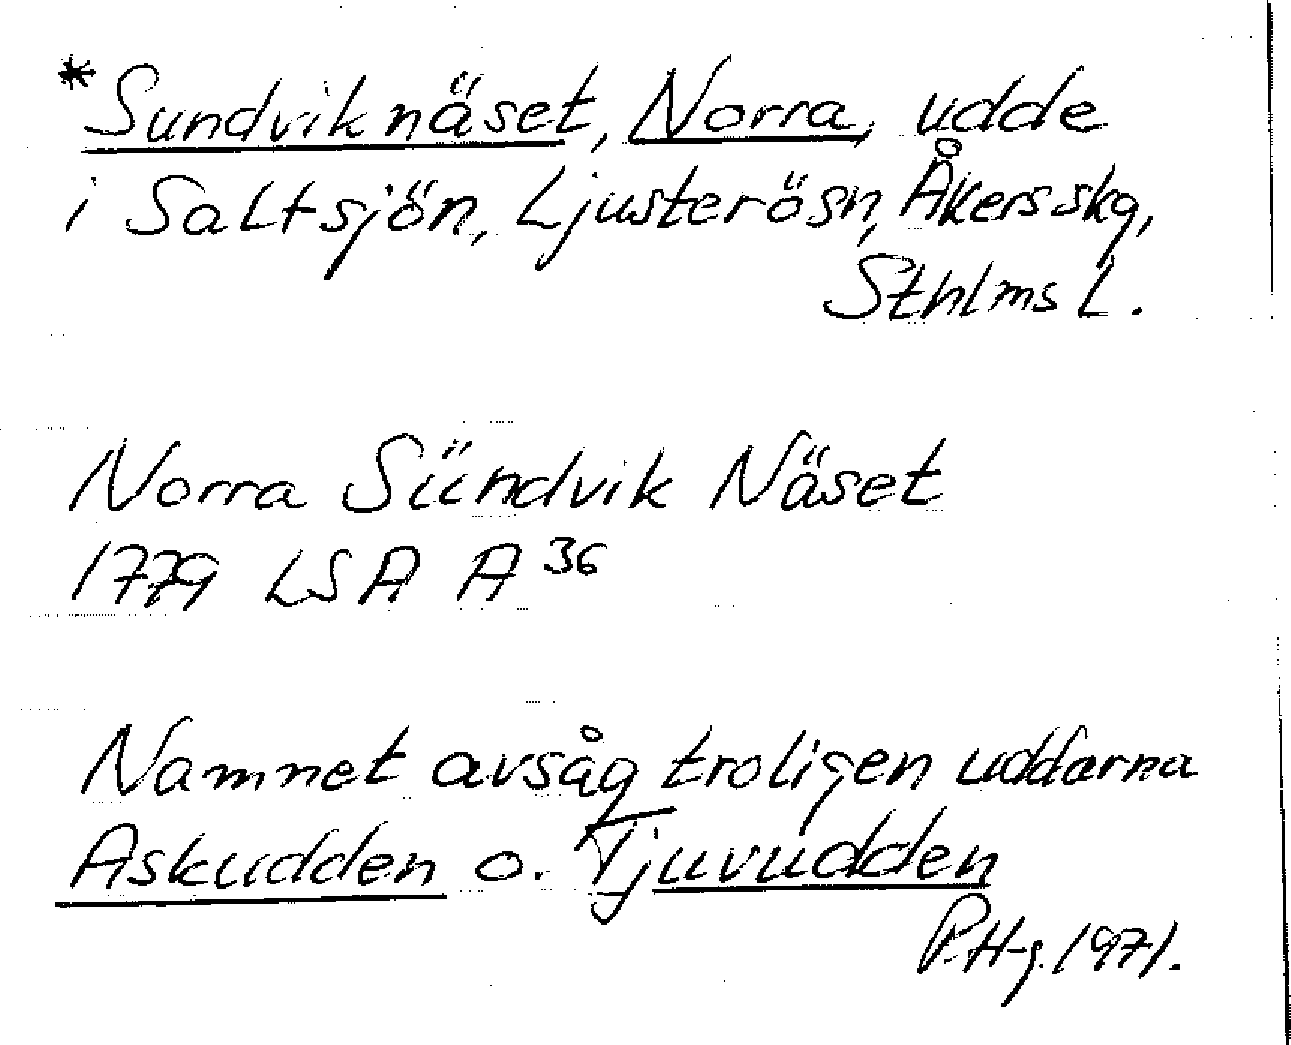 *Sundviknäset, Norra, udde
i Saltsjön, Ljusterösn, Åkers skg,
Sthlms l.
Norra Sündvik Näset
1779 LSA A 36
Namnet avsåg troligen uddarna
Askudden o. Tjuvudden
P.H-g. 1971.